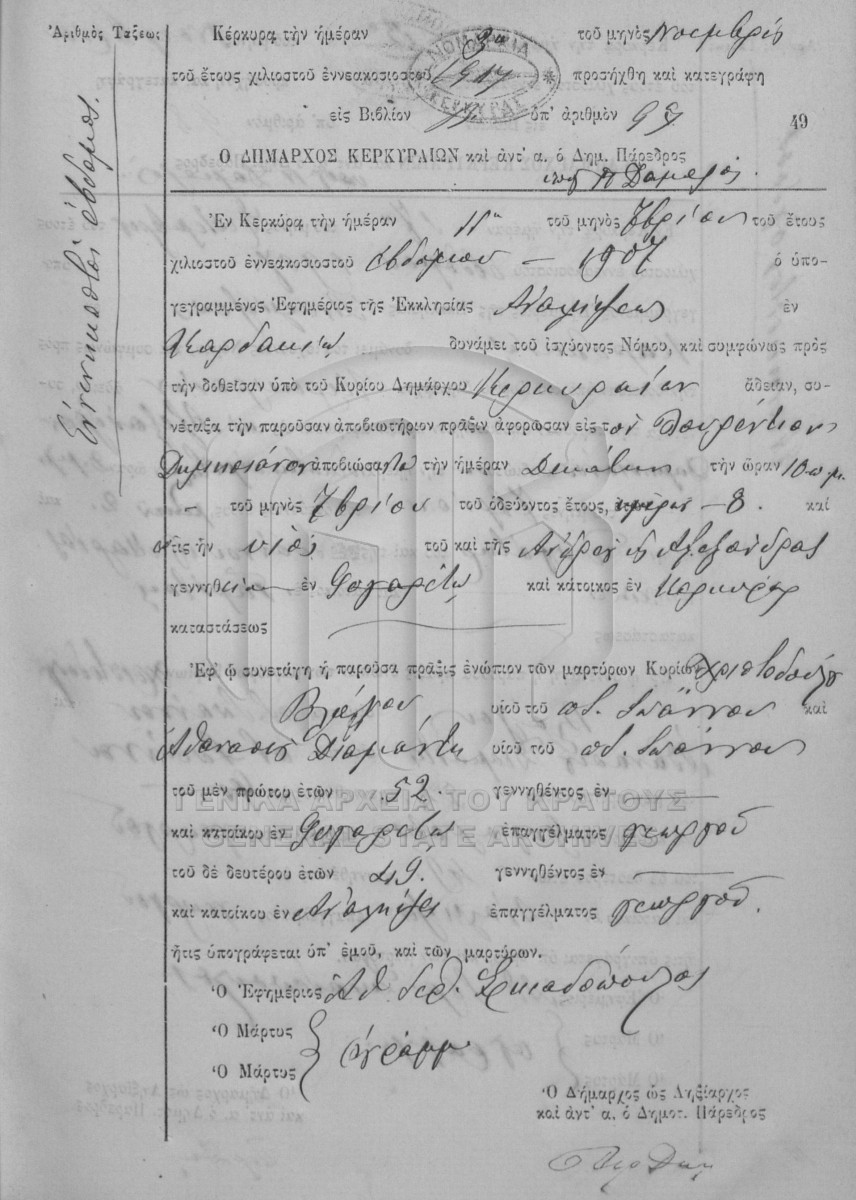 Ἀριθμὸς Τάξεως
Ἐννενηκοστὸς ἕβδομος.
Κέρκυρα τὴν ἡμέραν 3ην τοῦ μηνὸς Νοεμβρίο
τοῦ ἔτους χιλιοστοῦ ἐννεακοσιοστοῦ 1917 προσήχθη καὶ κατεγράφη
εἰς Βιβλίον ὑπ' ἀριθμὸν 97
49
Ο ΔΗΜΑΡΧΟΣ ΚΕΡΚΥΡΑΙΩΝ καὶ ἀντ' α. ὁ Δημ. Πάρεδρος
ΝΟΜΑΡΧΙΑ ΚΕΡΚΥΡΑΣ
Ἐν Κερκύρᾳ τὴν ἡμέραν 11η τοῦ μηνὸς 7βρίου τοῦ ἔτους
χιλιοστοῦ ἐννεακοσιοστοῦ ἑβδόμου – 1907 ὁ ὑπο-
γεγραμμένος Ἐφημέριος τῆς Ἐκκλησίας Ἀναλήψεως ἐν
δυνάμει τοῦ ἰσχύοντος Νόμου, καὶ συμφώνως πρὸς
τὴν δοθεῖσαν ὑπὸ τοῦ Κυρίου Δημάρχου Κερκυραίων ἄδειαν, συ-
νέταξα τὴν παροῦσαν ἀποβιωτήριον πρᾶξιν ἀφορῶσαν εἰς τὸν
ἀποβιώσαντα τὴν ἡμέραν Δεκάτην τὴν ὥραν 10 π.μ.
– τοῦ μηνὸς 7βρίου τοῦ ὁδεύοντος ἔτους, – 8. καὶ
ὅςτις ἦν υἱὸς τοῦ καὶ τῆς Ἀνδρέου κ Ἀλεξάνδρας
γεννηθ ἐν καὶ κάτοικος ἐν Κερκύρᾳ
καταστάσεως
Ἐφ' ᾧ συνετάγη ἡ παροῦσα πρᾶξις ἐνώπιον τῶν μαρτύρων Κυρίων Χριστοδούλου
Βλάχου υἱοῦ τοῦ ποτ. Ἰωάννου καὶ
Ἀθανασίου Διαμάντη υἱοῦ τοῦ ποτ. Ἰωάννου
τοῦ μὲν πρώτου ἐτῶν 52. γεννηθέντος ἐν
ΓΕΝΙΚΑ ΑΡΧΕΙΑ ΤΟΥ ΚΡΑΤΟΥΣ
καὶ κατοίκου ἐν ἐπαγγέλματος γεωργοῦ
GENERAL STATE ARCHIVES
τοῦ δὲ δευτέρου ἐτῶν 49. γεννηθέντος ἐν
καὶ κατοίκου ἐν Ἀναλήψει ἐπαγγέλματος γεωργοῦ.
ἥτις ὑπογράφεται ὑπ' ἐμοῦ, καὶ τῶν μαρτύρων.
Ὁ Ἐφημέριος Σκιαδόπουλος
Ὁ Μάρτυς
Ὁ Μάρτυς
ἀγράμμ
Ὁ Δήμαρχος ὡς Ληξίαρχος
καὶ ἀντ' α. ὁ Δημοτ. Πάρεδρος